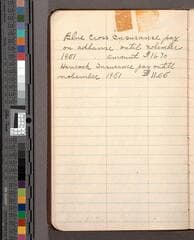 Blue Cross Insurance pay
on advance until november
1951 amount $16.70
Hancock Insurance pay until
november 1951 $11.66